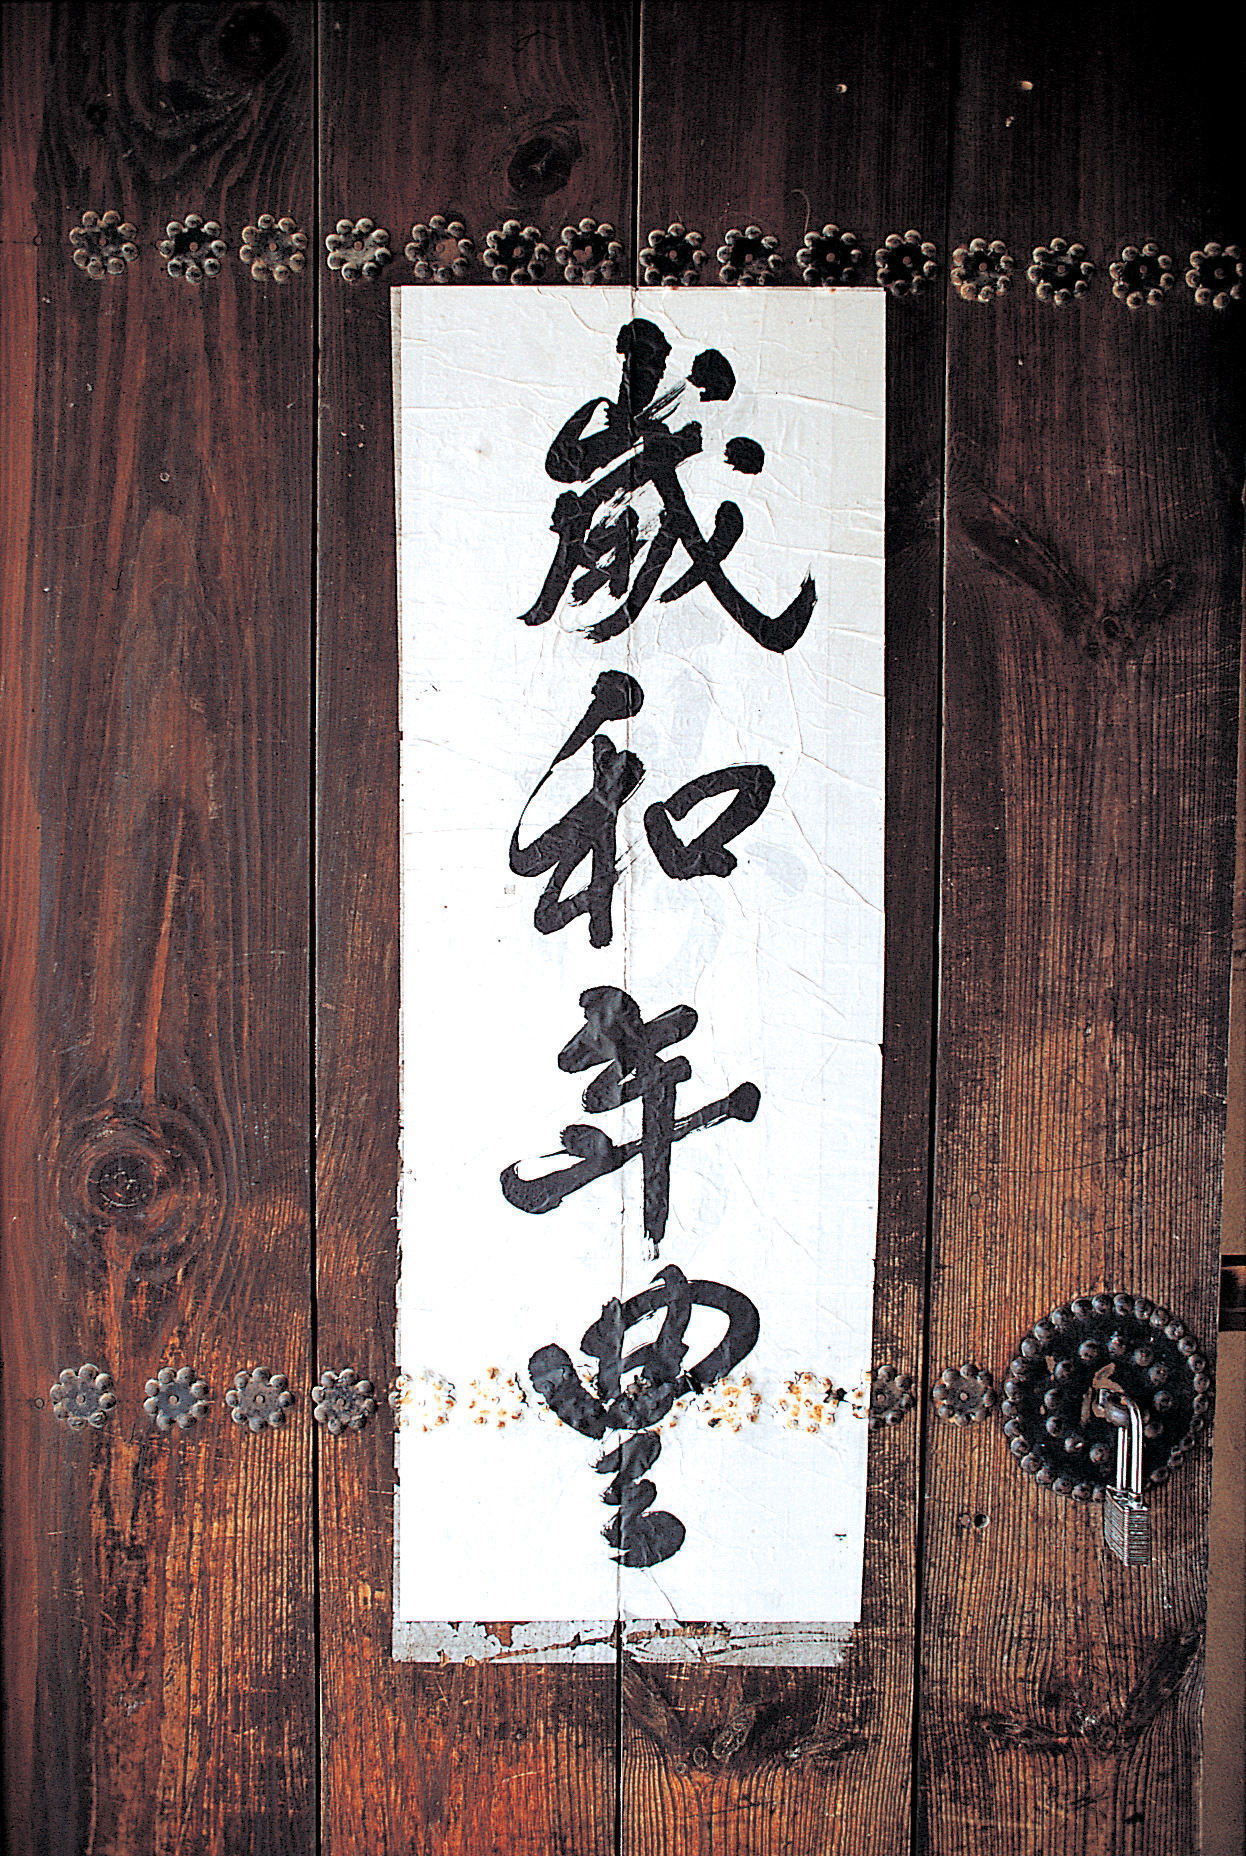 歲和年豊